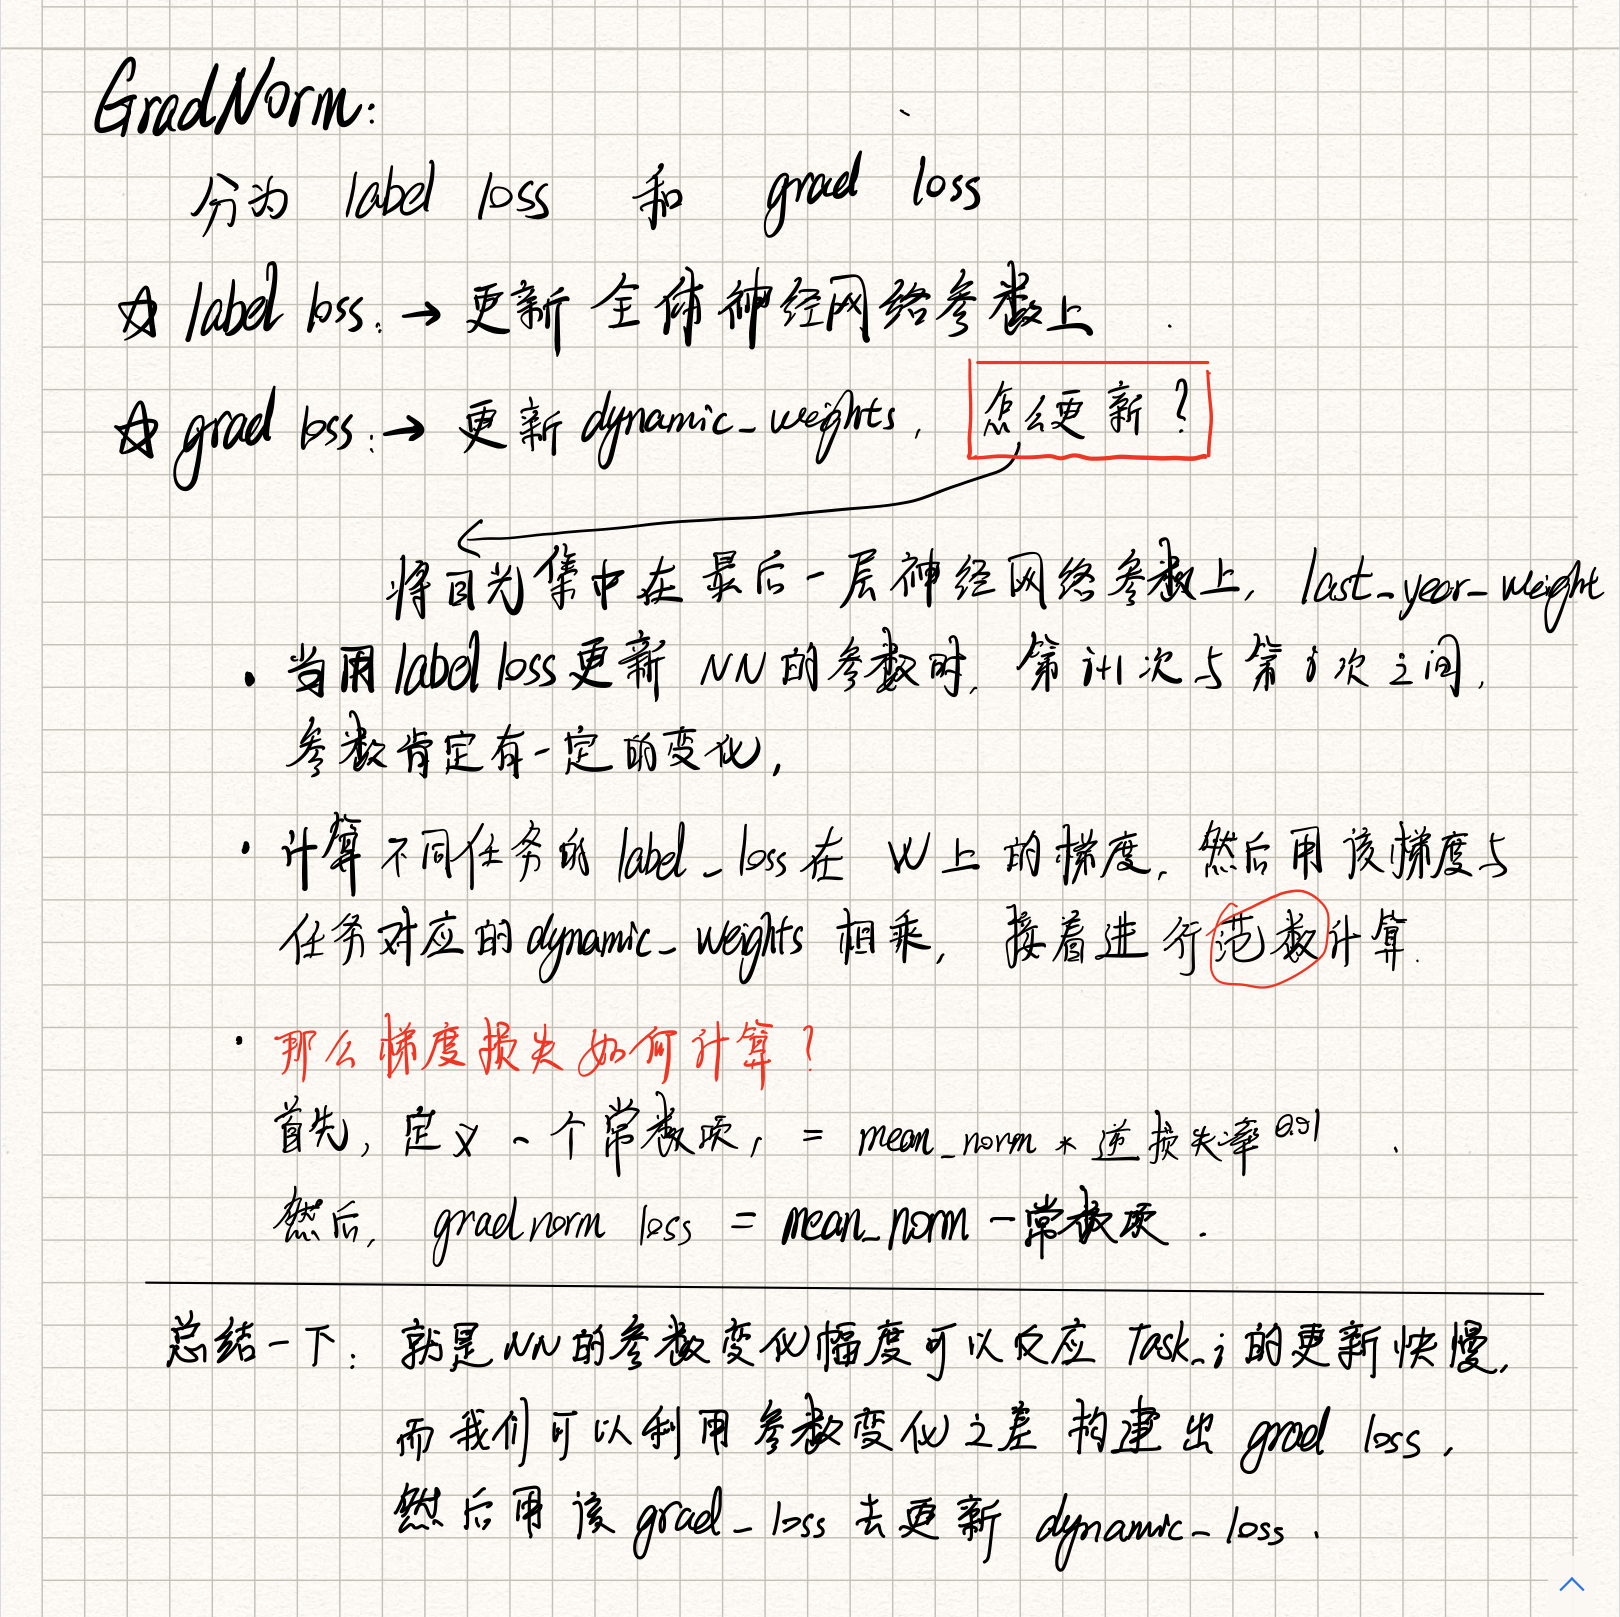 GradNorm:
分为 label loss 和 grad loss
☆ label loss: → 更新全体神经网络参数上
☆ grad loss: → 更新 dynamic_weights, 怎么更新?
将目光集中在最后一层神经网络参数上, last_year_weight
· 当用label loss更新 NN的参数时, 第i+1次与第i次之间,
参数肯定有一定的变化,
· 计算不同任务的 label_loss在 W上的梯度, 然后用该梯度与
任务对应的dynamic_weights 相乘, 接着进行范数计算.
· 那么梯度损失如何计算?
首先, 定义一个常数项, = mean_norm * 逆损失率
然后, gradnorm loss = mean_norm - 常数项.
总结一下: 就是NN的参数变化幅度可以反应 Task_i的更新快慢,
而我们可以利用参数变化之差构建出 grad loss,
然后用该 grad_loss去更新 dynamic_loss.